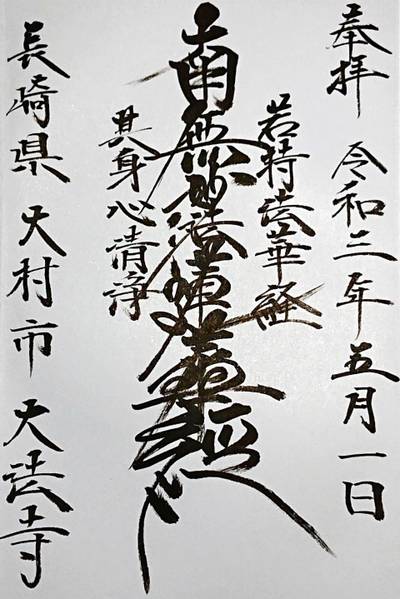 奉拝 令和三年五月一日
若持法華経
南無妙法蓮華経
其身心清浄
長崎県 大村市 大法寺